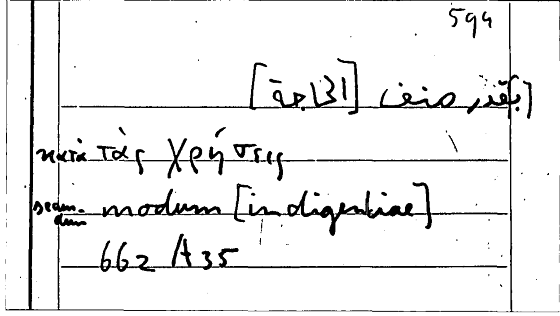 594
[بقدر صنف [الحاجة
κατὰ τὰς χρήσεις
secundum modum [indigentiae]
662 A35